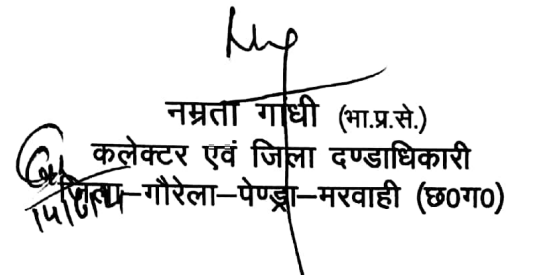 नम्रता गांधी (भा.प्र.से.)
कलेक्टर एवं जिला दण्डाधिकारी
जिला–गौरेला–पेण्ड्रा–मरवाही (छ0ग0)